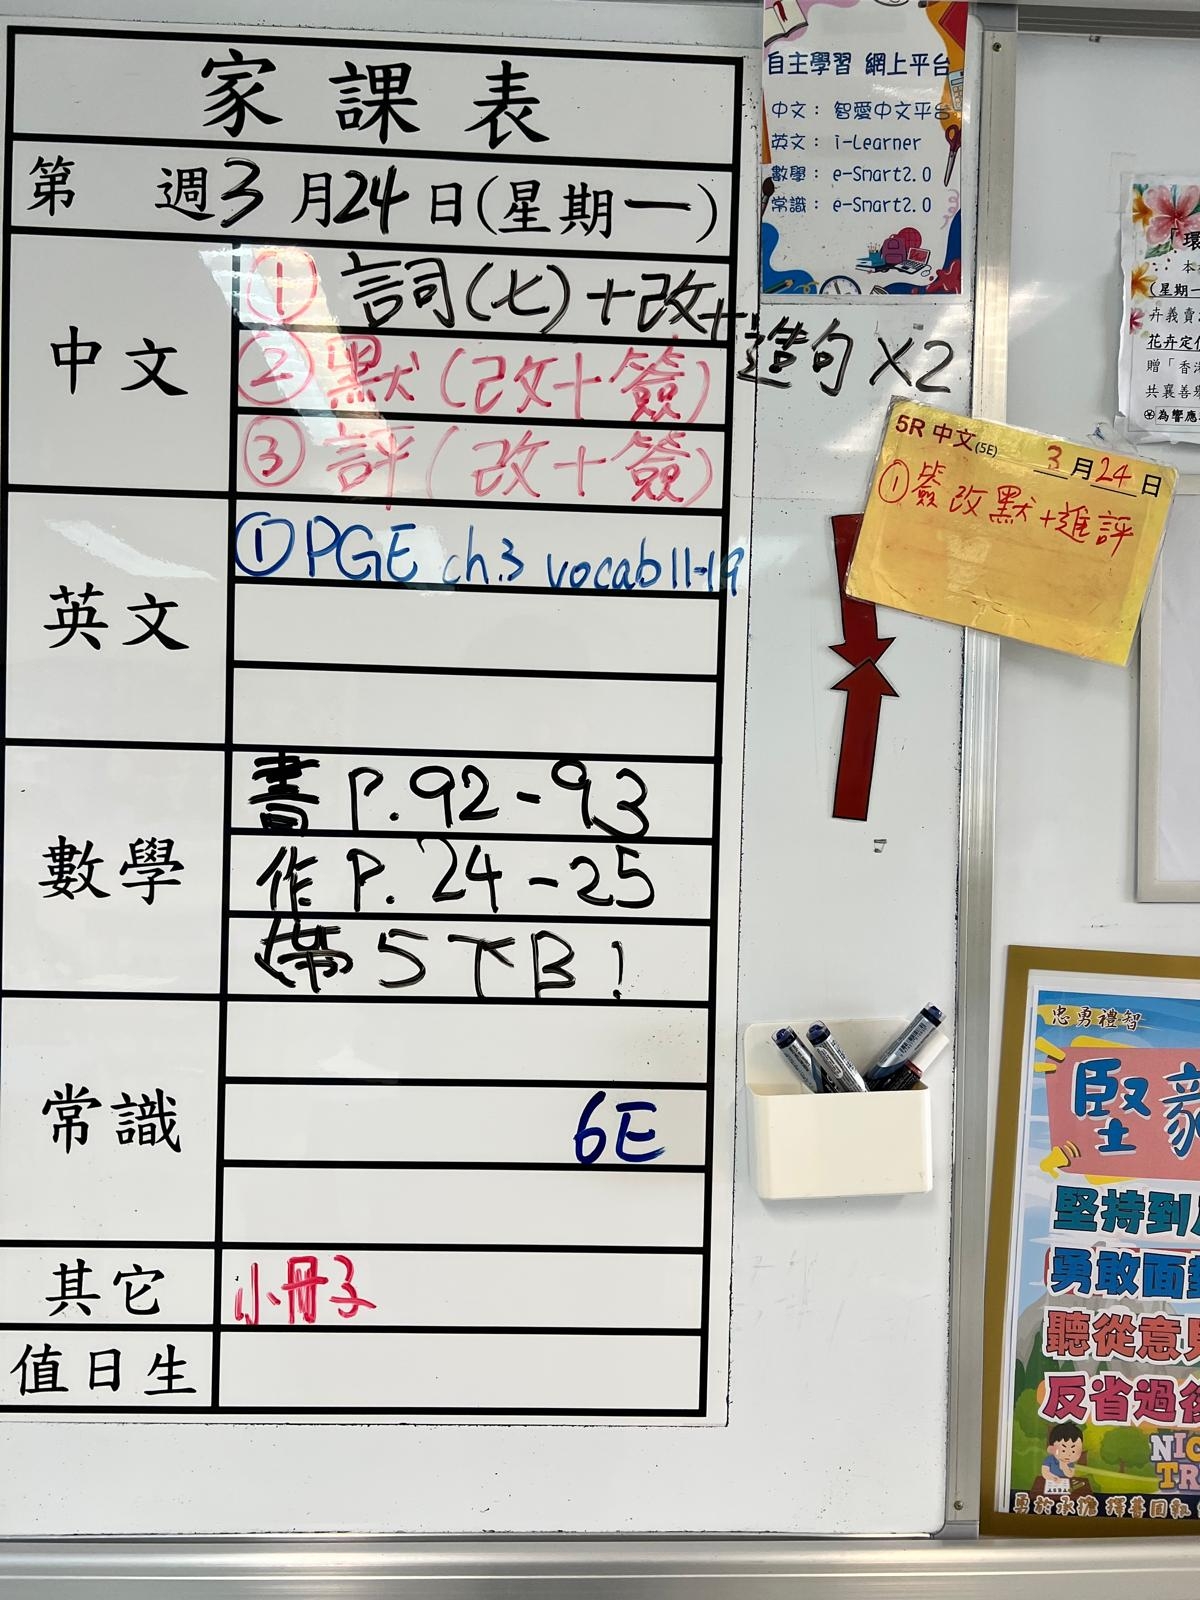 家課表
第 週3月24日(星期一)
中文
① 詞(七)+改+造句 X2
② 默(改+簽)
③ 評(改+簽)
英文
① PGE ch.3 vocab 11-19
數學
書 P. 92-93
作 P. 24-25
帶 5下B!
常識
6E
其它
小冊子
值日生
自主學習 網上平台
中文: 智愛中文平台
英文: i-Learner
數學: e-Smart2.0
常識: e-Smart2.0
5R 中文(5E) 3月24日
① 簽改默+進評
「環
本
(星期一
卉義賣
花卉定
贈「香港
共襄善舉
為響應
忠勇禮智
堅毅
堅持到
勇敢面對
聽從意見
反省過後
NIC
TR
勇於承擔 擇善固執